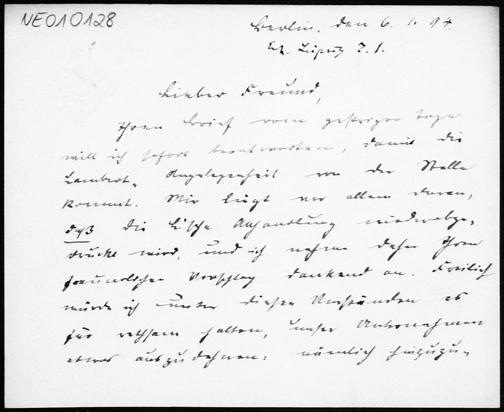 NE010128
Berlin, den 6. 1. 94.
Lieber Freund,
Ihren Brief vom gestrigen Tage
will ich sofort beantworten, damit die
Lambert-Angelegenheit von der Stelle
kommt. Mir liegt vor allem daran,
daß die L'sche Abhandlung wiederabge-
druckt wird, und ich nehme daher Ihren
freundlichen Vorschlag dankend an. Freilich
würde ich unter diesen Umständen es
für rathsam halten, unser Unternehmen
etwas auszudehnen: nämlich hinzuzu-